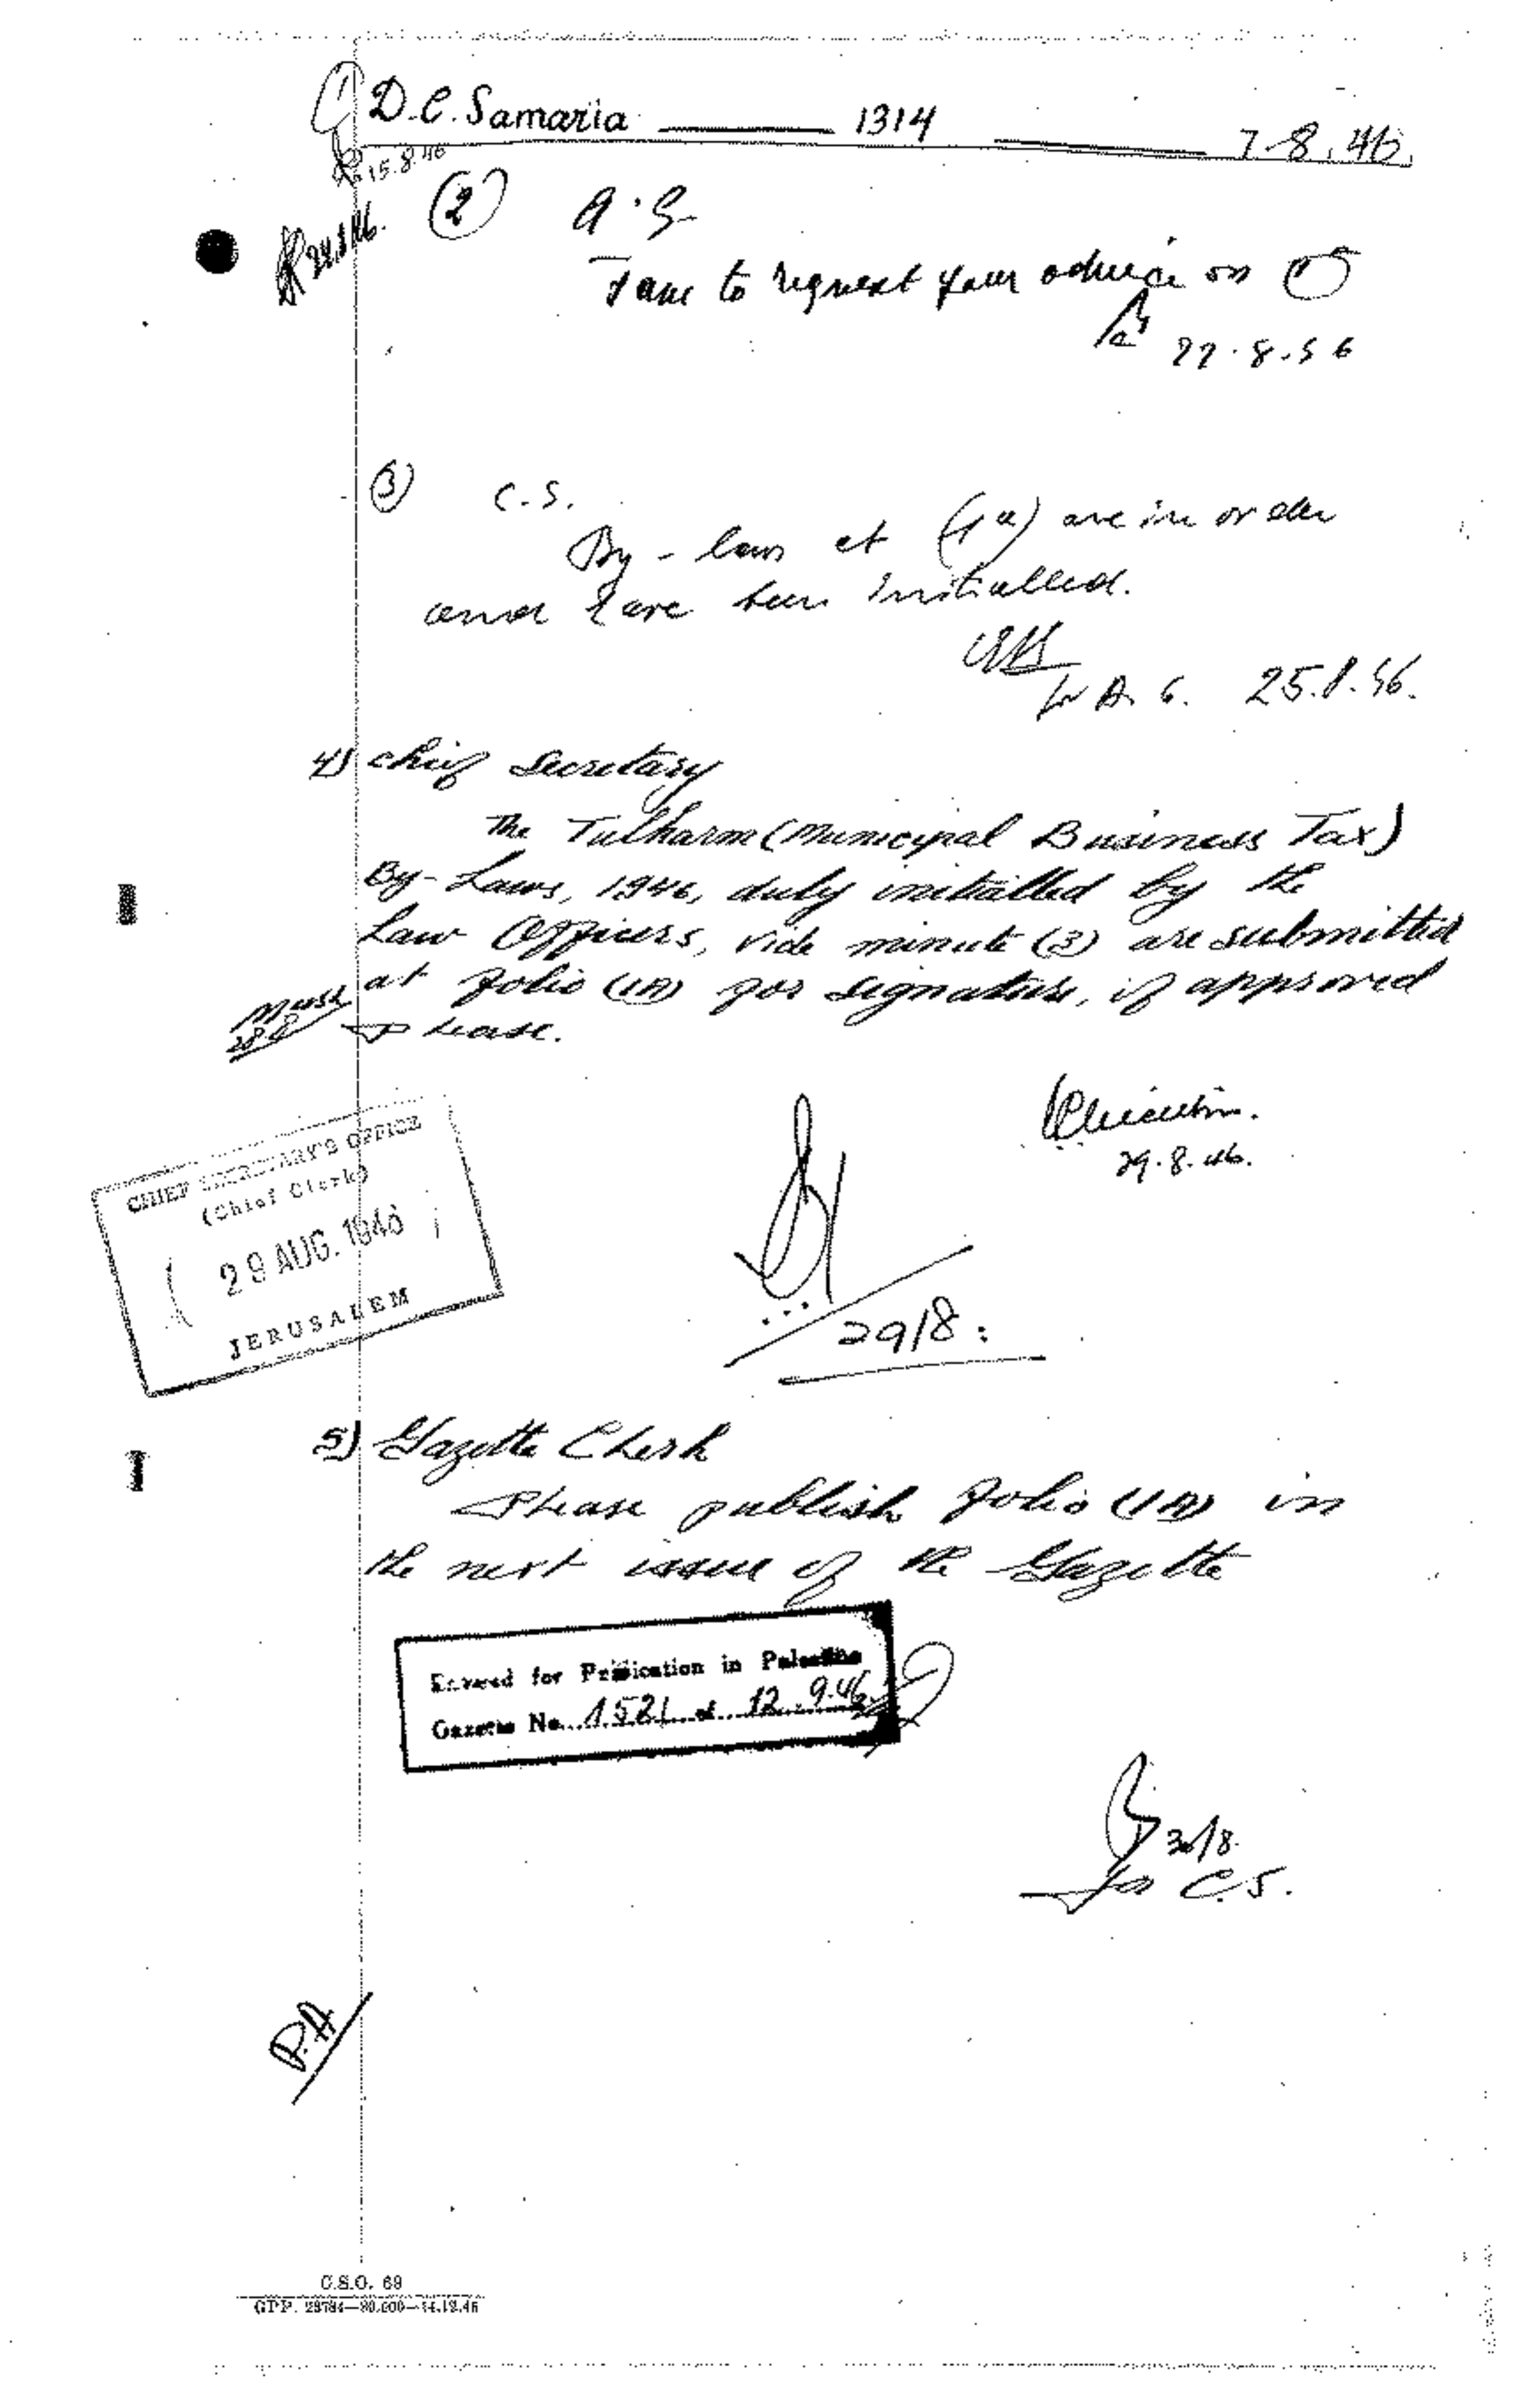 (1) D.C. Samaria 1314 7.8.46.
15.8.46
(2) A.G.
24.8.46.
I am to request your advice on (1)
22.8.46
(3) C.S.
By-laws at (1a) are in order
and have been initialled.
for A.G. 25.8.46.
4) Chief Secretary
The Tulkarm (Municipal Business Tax)
By-Laws, 1946, duly initialled by the
Law Officers, vide minute (3) are submitted
at folio (1A) for signature, if approved
please.
28.8
29.8.46.
CHIEF SECRETARY'S OFFICE
(Chief Clerk)
29 AUG. 1946
JERUSALEM
29/8.
5) Gazette Clerk
Please publish folio (1A) in
the next issue of the Gazette
Entered for Publication in Palestine
Gazette No. 1521 of 12.9.46
30/8
for C.S.
P.A
C.S.O. 69